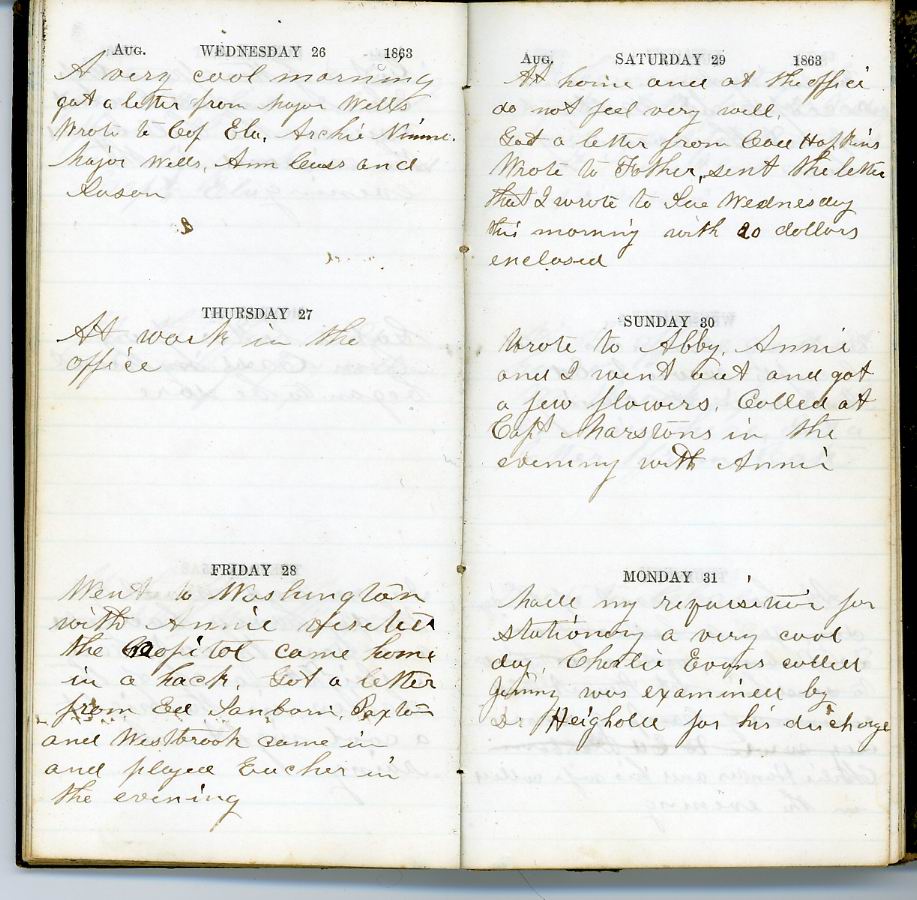 Aug. WEDNESDAY 26 1863
A very cool morning
got a letter from Major Wells
Wrote to Ela, Archie
Major Wells, Ann and
THURSDAY 27
At work in the
office
FRIDAY 28
Went to Washington
with Annie visited
the came home
in a hack. Got a letter
from Ed Sanborn, Paxton
and Westbrook came in
and played Eucher in
the evening
Aug. SATURDAY 29 1863
At home and at the office
do not feel very well.
Got a letter from Hopkins
Wrote to Father, sent the letter
that I wrote to Sue Wednesday
this morning with 20 dollars
enclosed
SUNDAY 30
Wrote to Abby. Annie
and I went out and got
a few flowers. Called at
Capt Marstons in the
evening with Annie
MONDAY 31
Made my requisition for
stationary a very cool
day, Charlie Evans called
Jimmy was examined by
Dr for his discharge